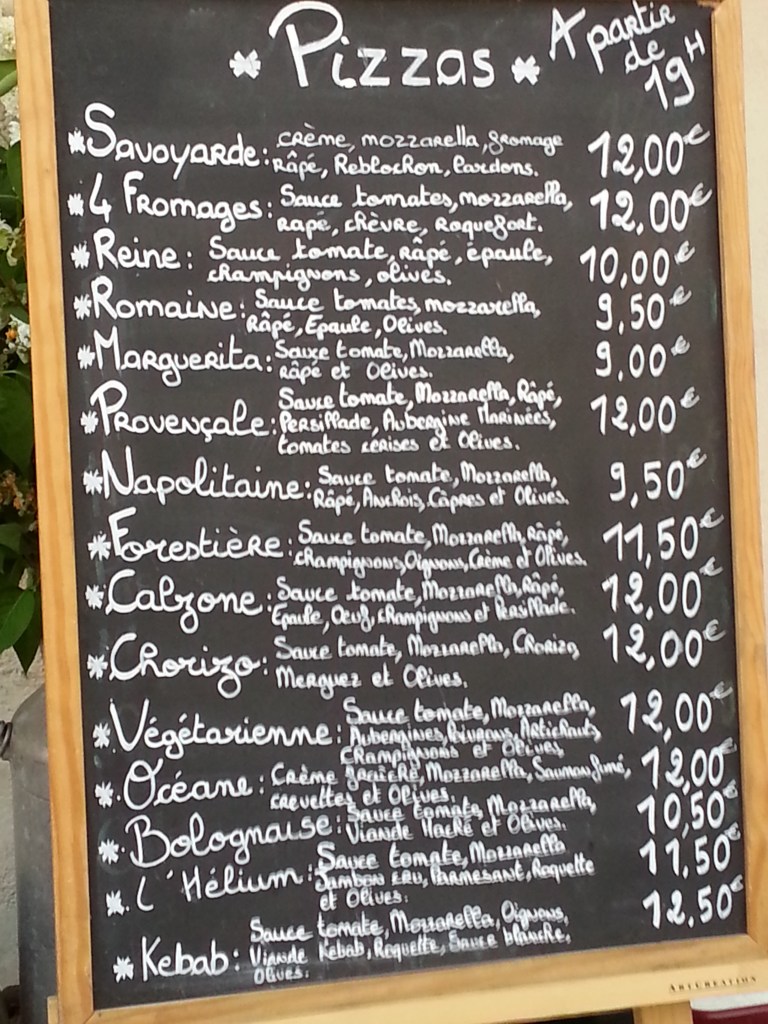 * Pizzas *
A partir
de
19H
* Savoyarde: crème, mozzarella, fromage 12,00€
râpé, Reblochon, lardons.
* 4 Fromages: Sauce tomates, mozzarella, 12,00€
rapé, chèvre, Roquefort.
* Reine: Sauce tomate, râpé, épaule, 10,00€
champignons, olives.
* Romaine: Sauce tomates, mozzarella, 9,50€
Râpé, Epaule, Olives.
* Marguerita: Sauce tomate, Mozzarella, 9,00€
râpé et Olives.
* Provençale: Sauce tomate, Mozzarella, Râpé, 12,00€
Persillade, Aubergine Marinées,
tomates cerises et Olives.
* Napolitaine: Sauce tomate, Mozzarella, 9,50€
Râpé, Anchois, Câpres et Olives.
* Forestière: Sauce tomate, Mozzarella, Râpé, 11,50€
champignons, Oignons, Crème et Olives.
* Calzone: Sauce tomate, Mozzarella, Râpé, 12,00€
Epaule, Oeuf, champignons et Persillade.
* Chorizo: Sauce tomate, Mozzarella, Chorizo, 12,00€
Merguez et Olives.
* Végétarienne: Sauce tomate, Mozzarella, 12,00€
Aubergines, Poivrons, Artichauts,
Champignons et Olives
* Océane: Crème fraîche, Mozzarella, Saumon fumé, 12,00€
crevettes et Olives.
* Bolognaise: Sauce tomate, Mozzarella, 10,50€
Viande Haché et Olives.
* L'Hélium: Sauce tomate, Mozzarella 11,50€
Jambon cru, Parmesant, Roquette
et Olives.
* Kebab: Sauce tomate, Mozzarella, Oignons, 12,50€
Viande Kebab, Roquette, Sauce blanche,
Olives.
ArtCreation